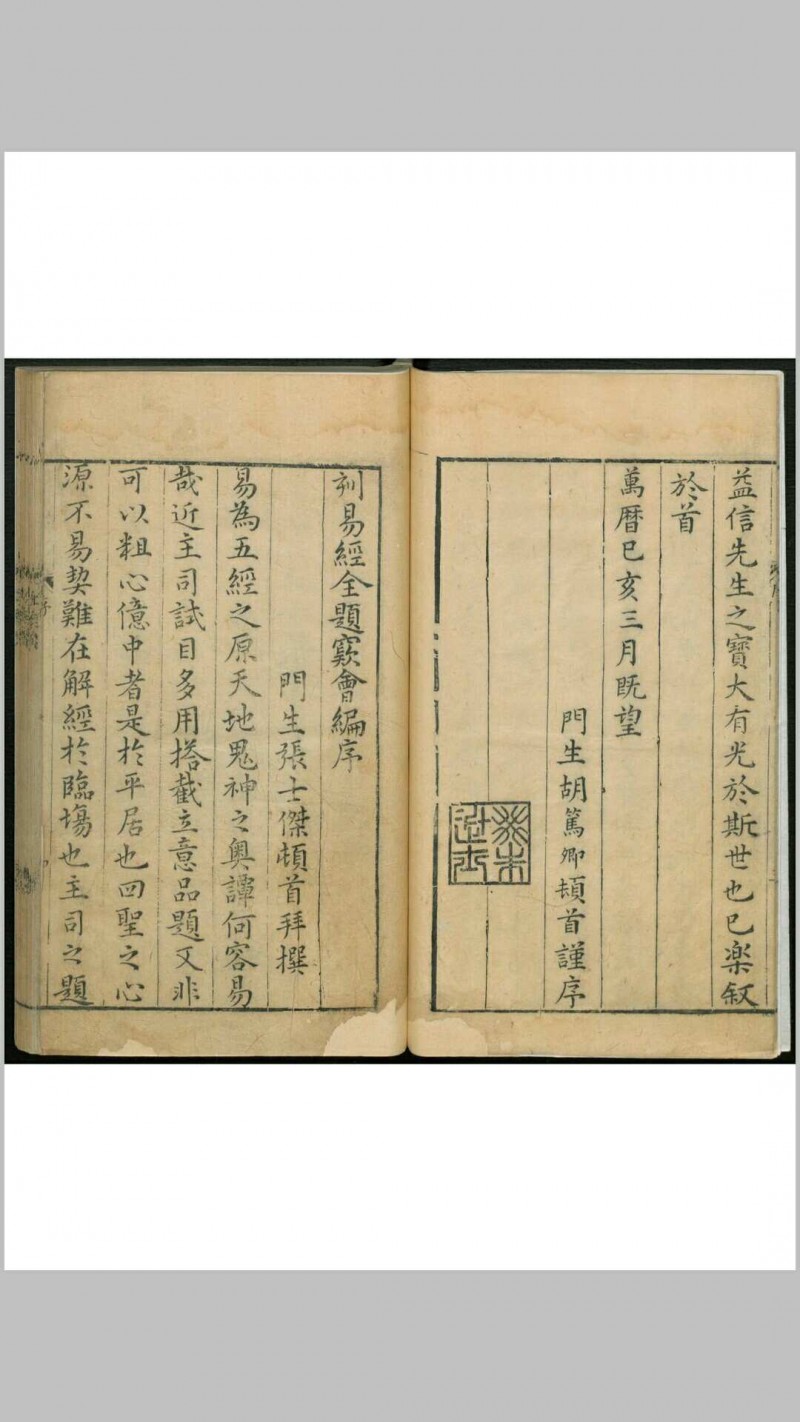 益信先生之寶大有光於斯世也已楽叙
於首
萬曆已亥三月既望
門生胡篤卿頓首謹序
癸未進士
刋易經全題窽會編序
門生張士傑頓首拜撰
易為五經之原天地鬼神之奥譚何容易
哉近主司試目多用搭截立意品題又非
可以粗心億中者是於平居也四聖之心
源不易契難在解經於臨塲也主司之題